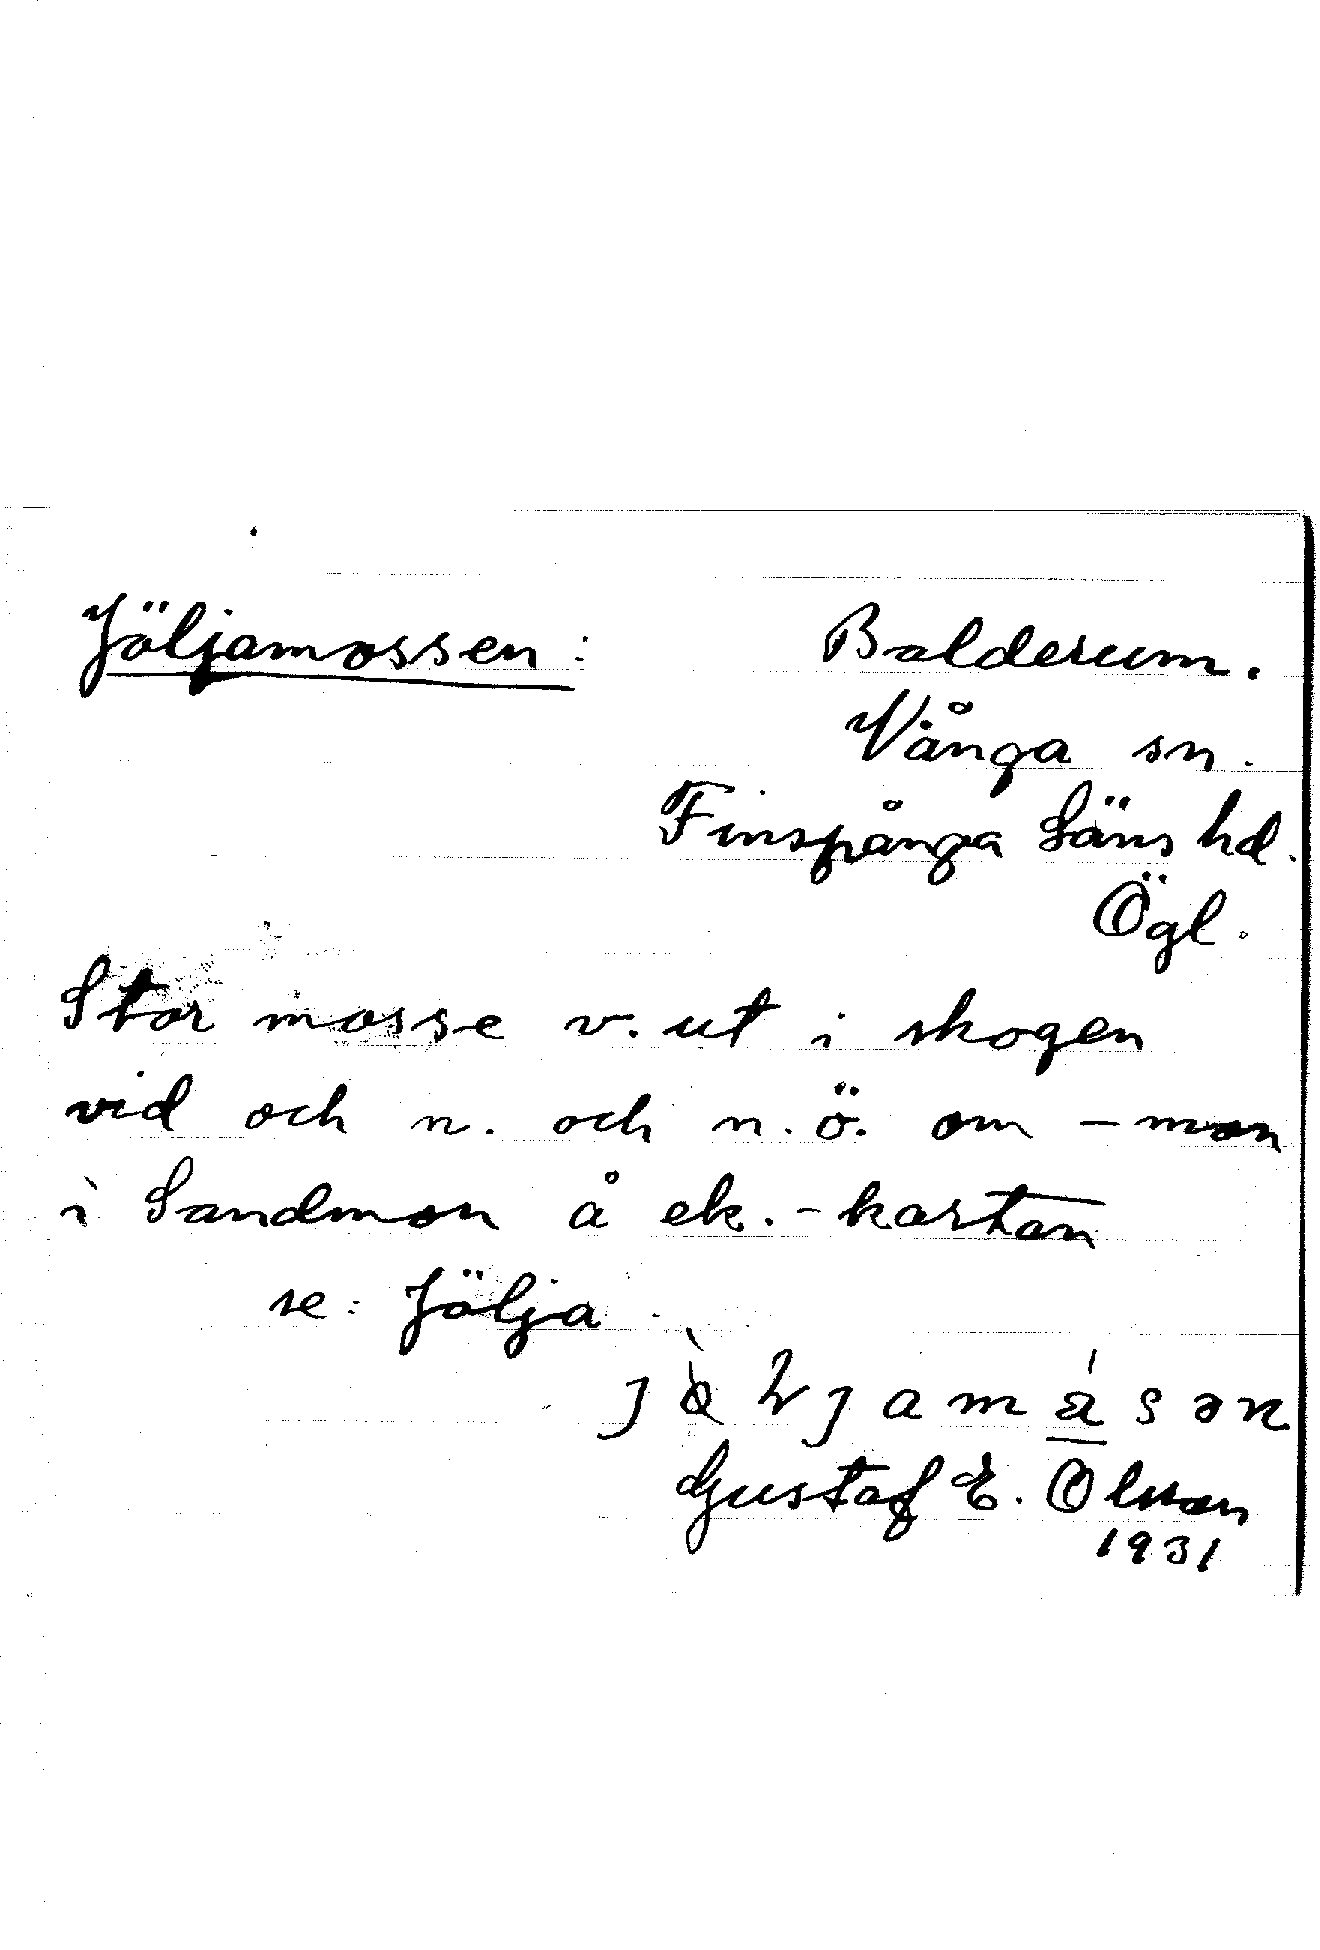 Jöljamossen: Balderum.
Vånga sn.
Finspånga Läns hd.
Ögl.
Stor mosse v. ut i skogen
vid och n. och n.ö. om -mon
i Sandmon å ek.-kartan
se: Jölja
Gustaf E. Olsson
1931